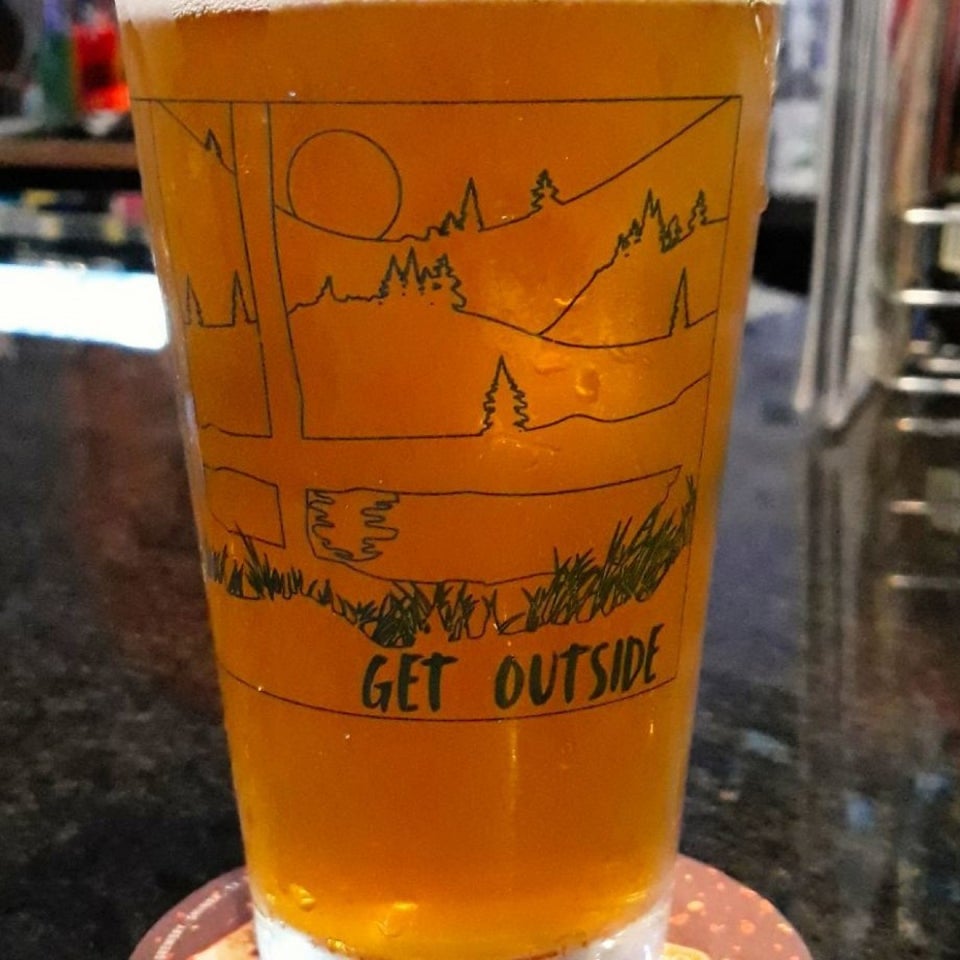 GET OUTSIDE